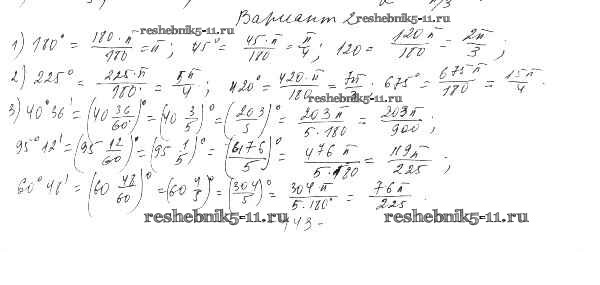 Вариант 2
reshebnik5-11.ru
1) 180° = 180·π/180 = π; 45° = 45·π/180 = π/4; 120 = 120π/180 = 2π/3;
2) 225° = 225·π/180 = 5π/4; 420° = 420·π/180 = 7π/3. 675° = 675π/180 = 15π/4.
reshebnik5-11.ru
3) 40°36' = (40 36/60)° = (40 3/5)° = (203/5)° = 203π/5·180 = 203π/900;
95°12' = (95 12/60)° = (95 1/5)° = (476/5)° = 476π/5·180 = 119π/225;
60°48' = (60 48/60)° = (60 4/5)° = (304/5)° = 304π/5·180° = 76π/225.
reshebnik5-11.ru reshebnik5-11.ru